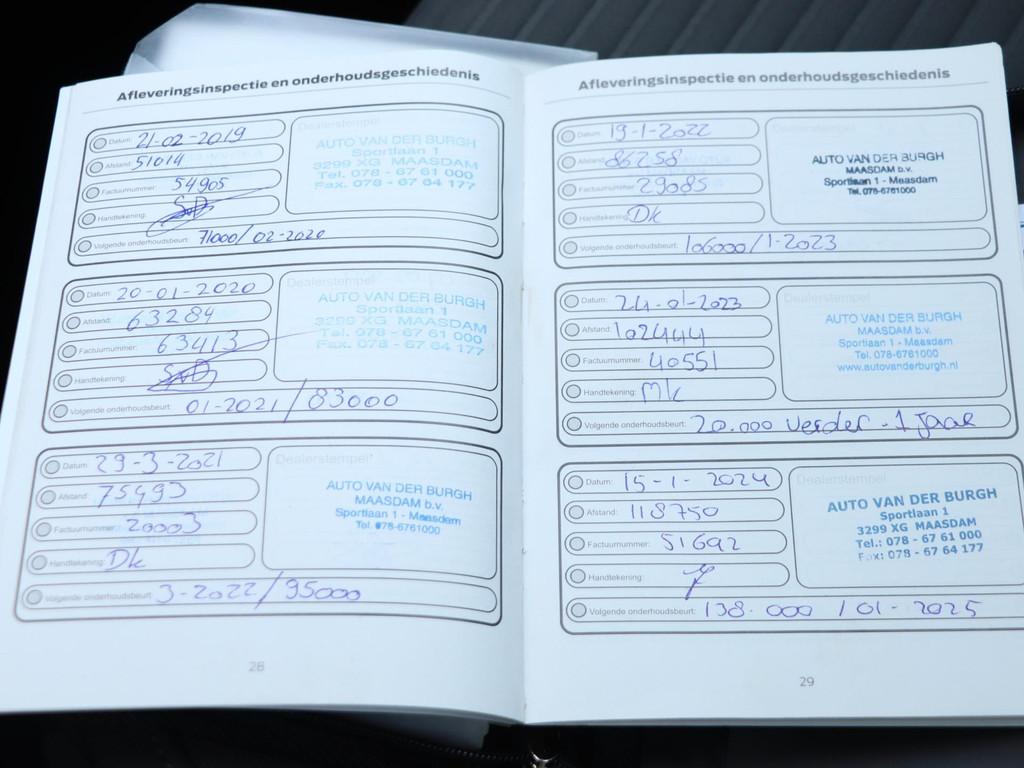 Afleveringsinspectie en onderhoudsgeschiedenis
Datum: 21-02-2019
Afstand: 51014
Factuurnummer: 54905
Handtekening:
Volgende onderhoudsbeurt: 71000/02-2020
Dealerstempel
AUTO VAN DER BURGH
Sportlaan 1
3299 XG MAASDAM
Tel. 078 - 67 61 000
Fax. 078 - 67 64 177
Datum: 20-01-2020
Afstand: 63284
Factuurnummer: 63413
Handtekening:
Volgende onderhoudsbeurt: 01-2021/83000
Dealerstempel
AUTO VAN DER BURGH
Sportlaan 1
3299 XG MAASDAM
Tel. 078 - 67 61 000
Fax. 078 - 67 64 177
Datum: 29-3-2021
Afstand: 75493
Factuurnummer: 20003
Handtekening: Dk
Volgende onderhoudsbeurt: 3-2022/95000
Dealerstempel
AUTO VAN DER BURGH
MAASDAM b.v.
Sportlaan 1 - Maasdam
Tel. 078-6761000
28
Afleveringsinspectie en onderhoudsgeschiedenis
Datum: 19-1-2022
Afstand: 86258
Factuurnummer: 29085
Handtekening: Dk
Volgende onderhoudsbeurt: 106000/1-2023
Dealerstempel
AUTO VAN DER BURGH
MAASDAM b.v.
Sportlaan 1 - Maasdam
Tel. 078-6761000
Datum: 24-01-2023
Afstand: 102444
Factuurnummer: 40551
Handtekening: Mk
Volgende onderhoudsbeurt: 20.000 verder - 1 jaar
Dealerstempel
AUTO VAN DER BURGH
MAASDAM b.v.
Sportlaan 1 - Maasdam
Tel. 078-6761000
www.autovanderburgh.nl
Datum: 15-1-2024
Afstand: 118750
Factuurnummer: 51692
Handtekening:
Volgende onderhoudsbeurt: 138.000 / 01-2025
Dealerstempel
AUTO VAN DER BURGH
Sportlaan 1
3299 XG MAASDAM
Tel.: 078 - 67 61 000
Fax: 078 - 67 64 177
29